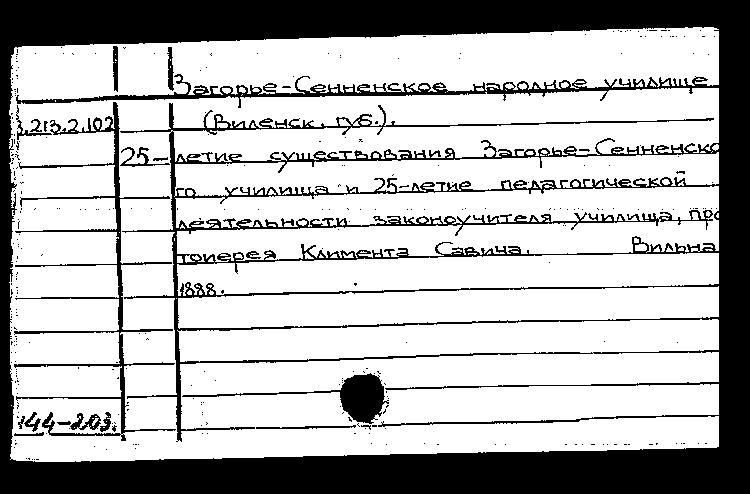 Загорье-Сенненское народное училище
.213.2.102 (Виленск. губ.).
25-летие существования Загорье-Сенненско
го училища и 25-летие педагогической
деятельности законоучителя училища, про
тоиерея Климента Савича. Вильна
1888.
144-203.